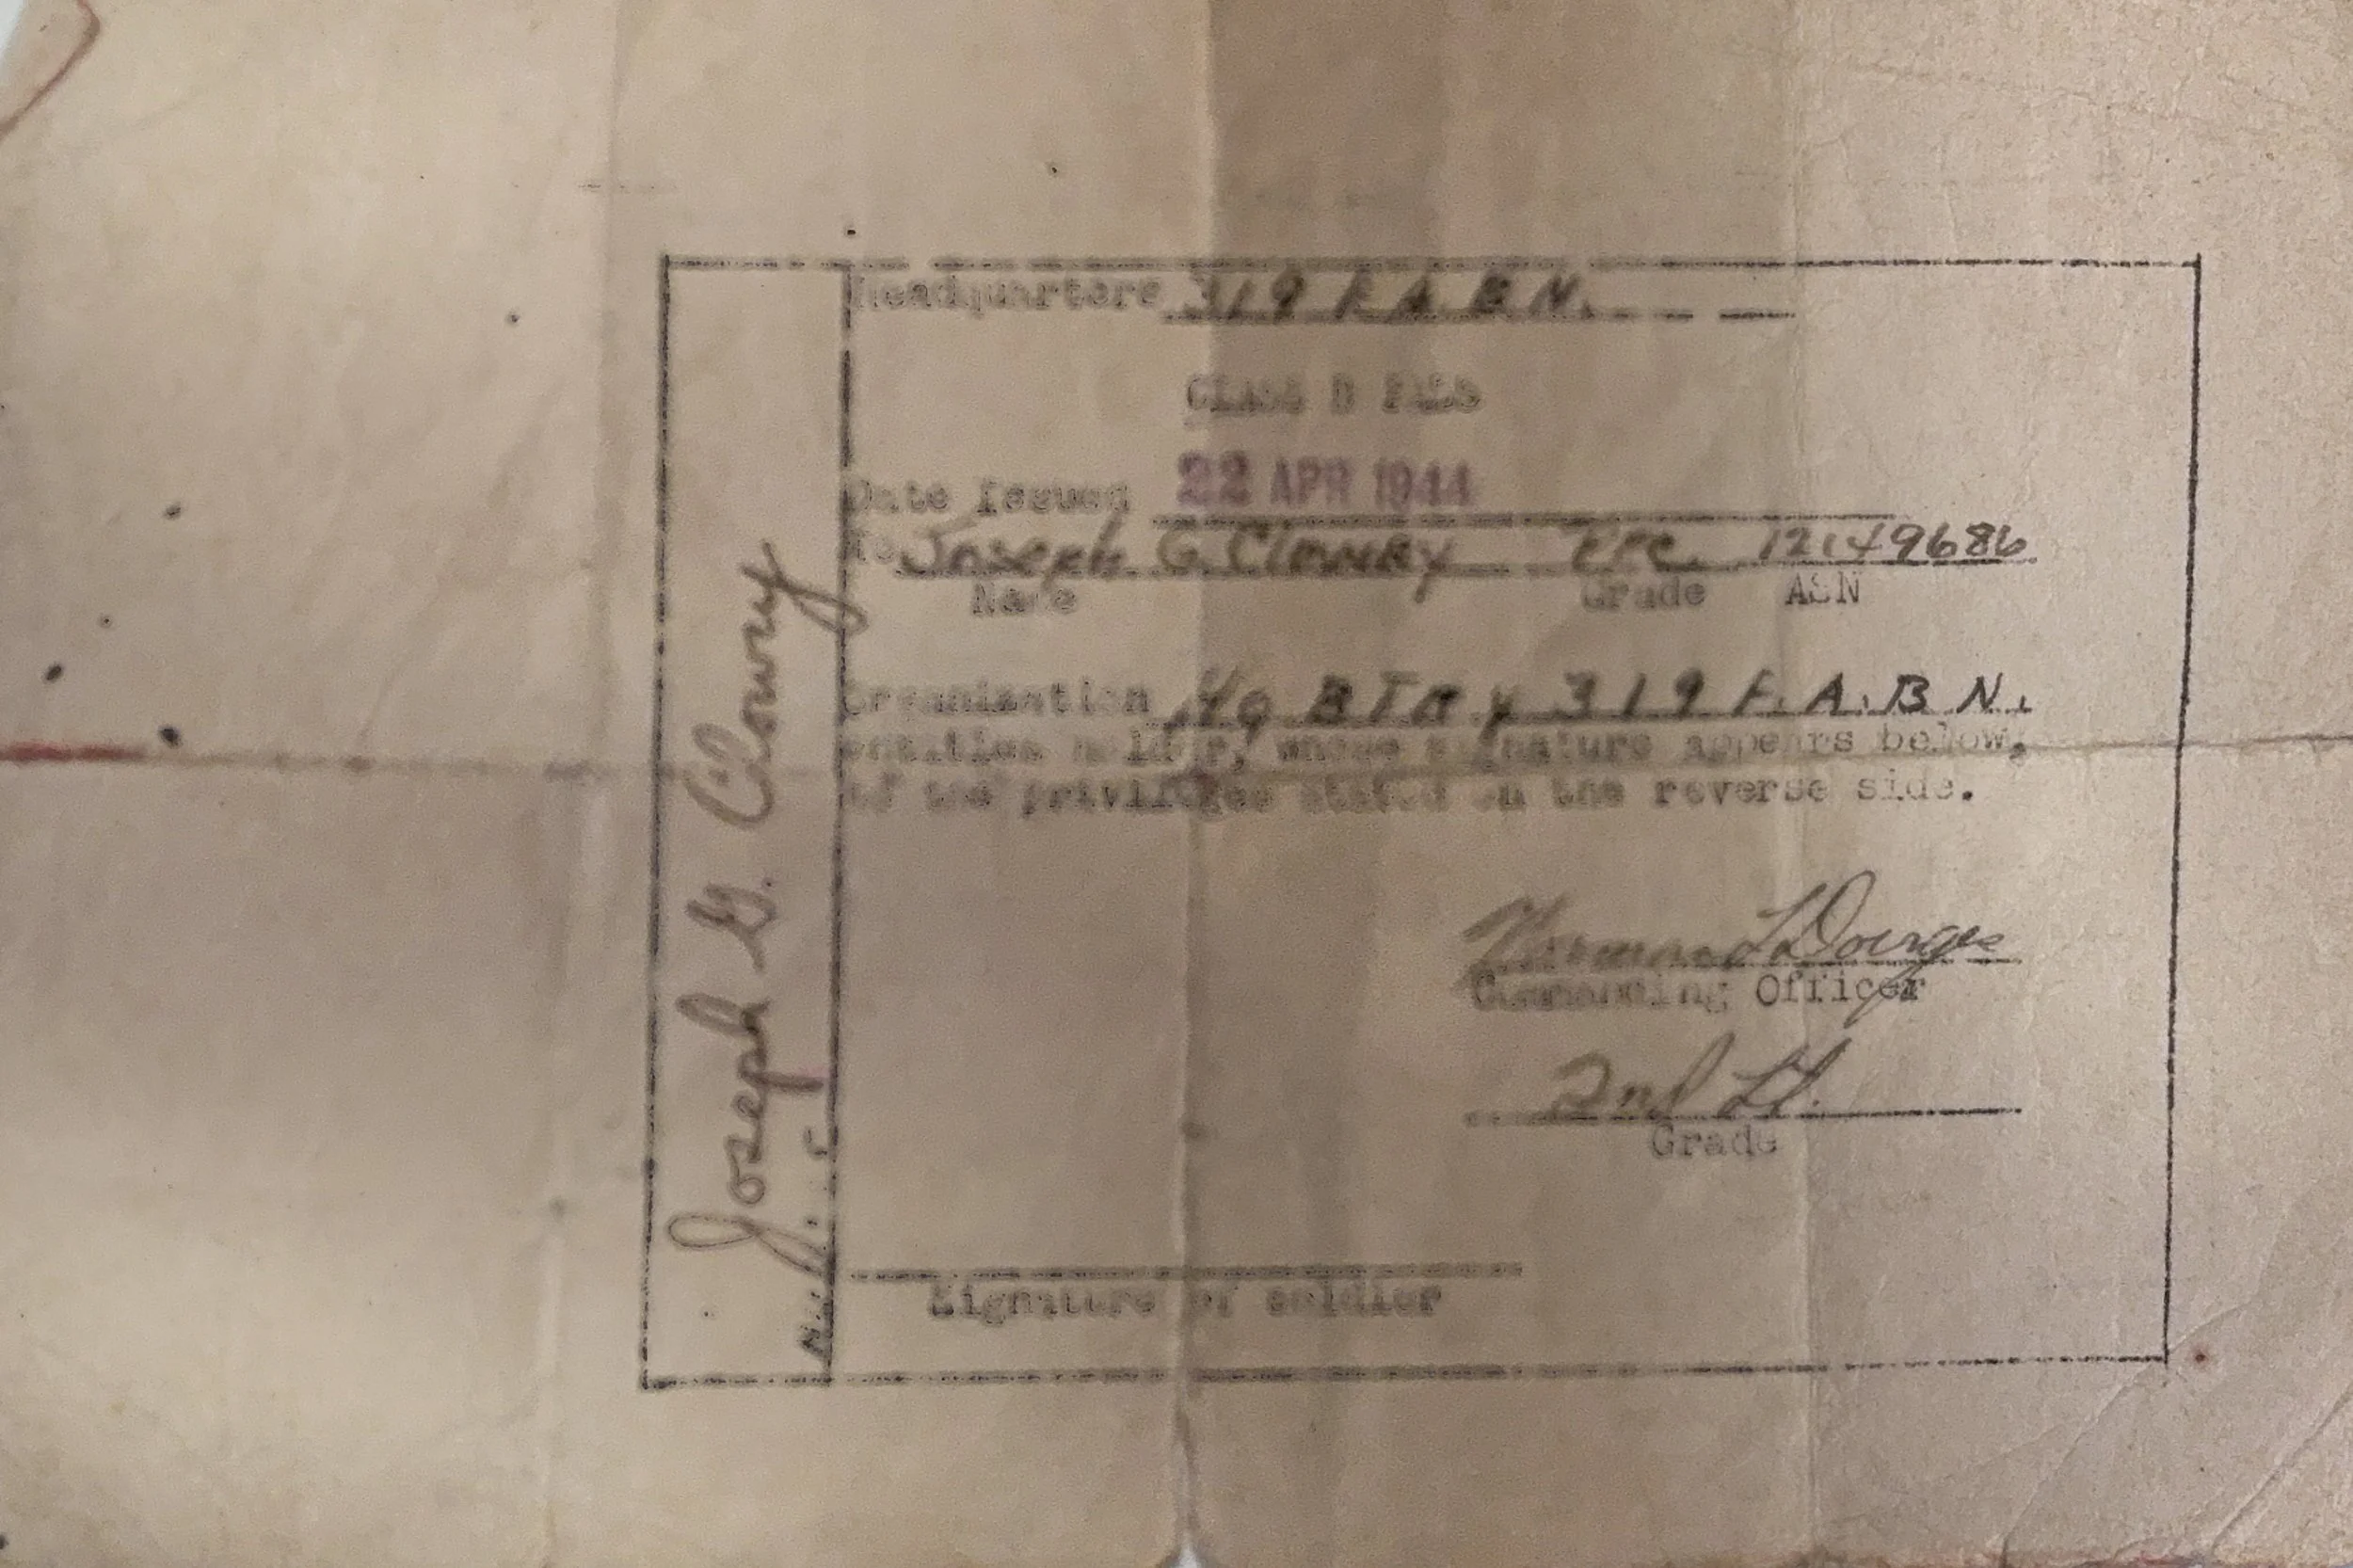 Headquarters 319 F A B N.
Class B Pass
Date Issued 22 APR 1944
To Joseph G. Clowry Pfc. 12149686
Name Grade ASN
Organization Hq BTRY 319 F.A.B N.
entitles holder, whose signature appears below,
of the privileges stated on the reverse side.
Commanding Officer
2nd Lt.
Grade
Signature of soldier
Joseph G. Clowry